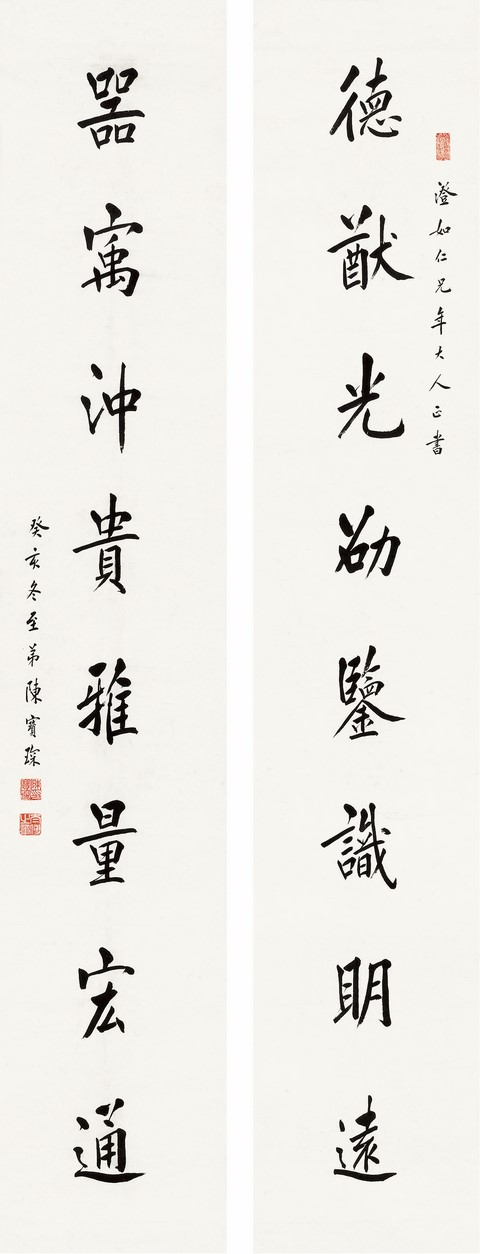 德猷光劭鑒識明遠
澄如仁兄年大人正書
器寓沖貴雅量宏通
癸亥冬至弟陳寶琛